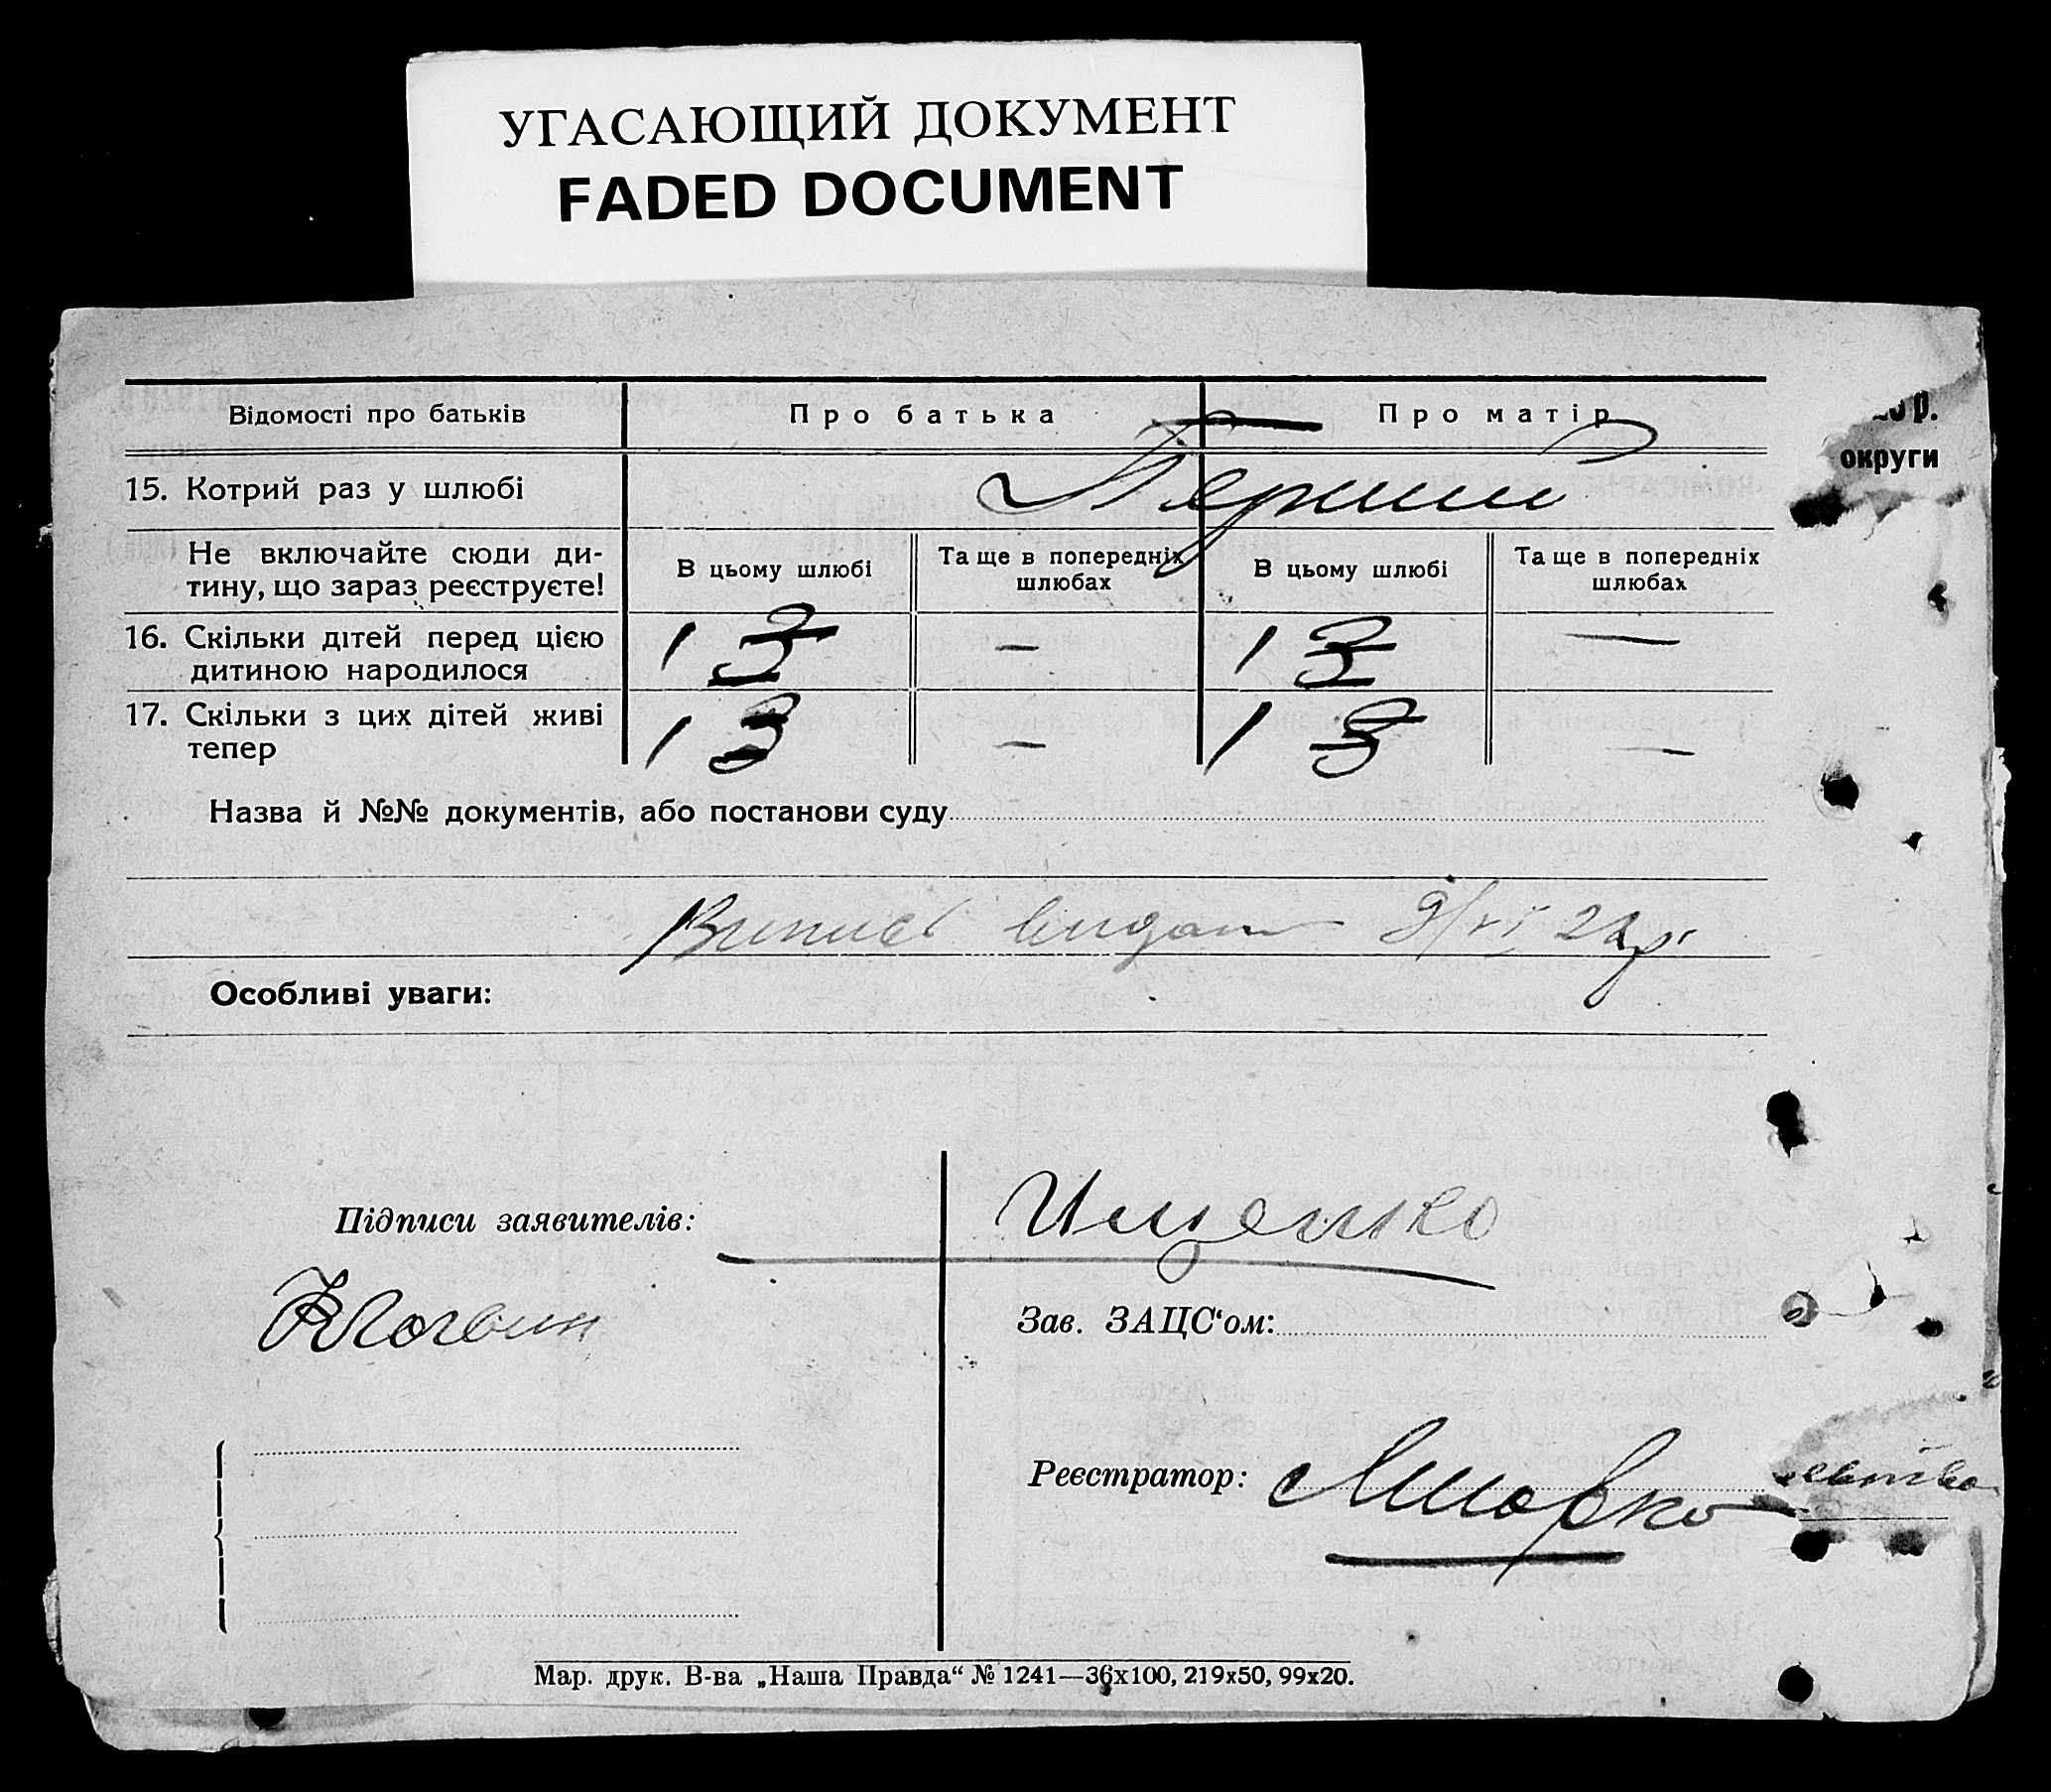 УГАСАЮЩИЙ ДОКУМЕНТ
FADED DOCUMENT
Відомості про батьків Про батька Про матір
15. Котрий раз у шлюбі
Перший
Не включайте сюди ди-
тину, що зараз реєструєте!
В цьому шлюбі
Та ще в попередніх
шлюбах
В цьому шлюбі
Та ще в попередніх
шлюбах
16. Скільки дітей перед цією
дитиною народилося
1 — 1 —
17. Скільки з цих дітей живі
тепер
1 — 1 —
Назва й №№ документів, або постанови суду
9/VI
Особливі уваги:
Підписи заявителів:
Ищенко
Логвин
Зав. ЗАЦС‘ом:
Реєстратор:
Мар. друк. В-ва „Наша Правда“ № 1241—36х100, 219х50, 99х20.
р.
округи